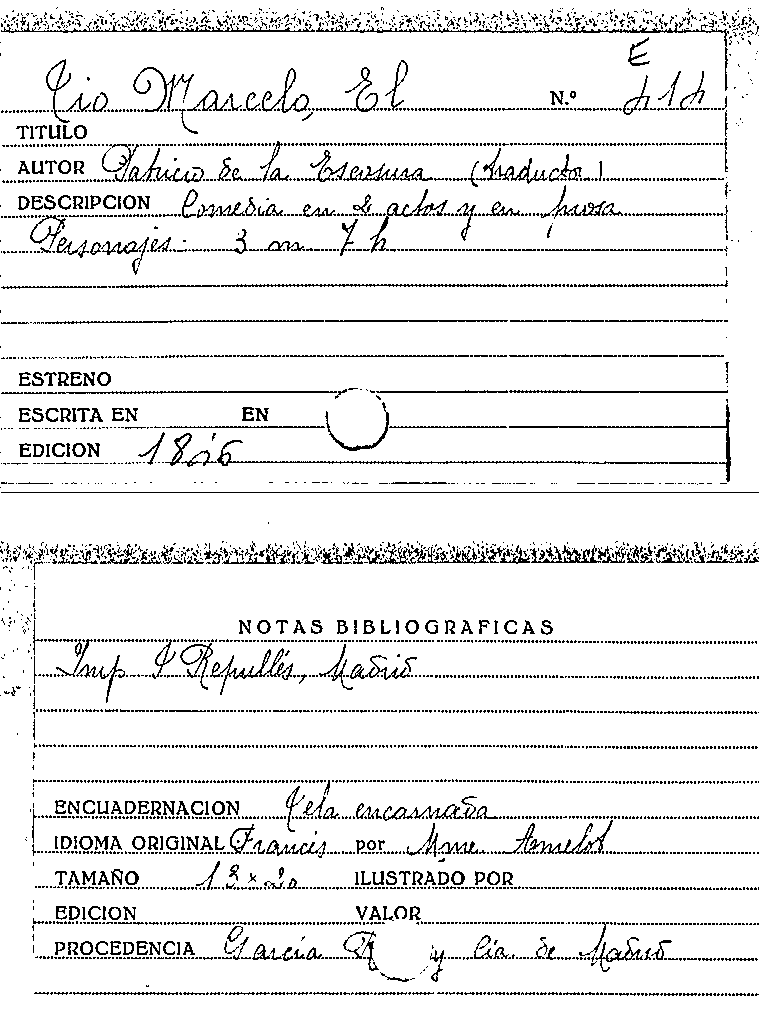 E
Tio Marcelo, El N.º 414
TITULO
AUTOR Patricio de la Escosura (traductor)
DESCRIPCION Comedia en 2 actos y en prosa
Personajes: 3 m 7 h
ESTRENO
ESCRITA EN EN
EDICION
NOTAS BIBLIOGRAFICAS
Imp I Repullés, Madrid
ENCUADERNACION Tela encarnada
IDIOMA ORIGINAL Francés por Mme. Ancelot
TAMAÑO 13 x 20 ILUSTRADO POR
EDICION VALOR
PROCEDENCIA García y Cia. de Madrid